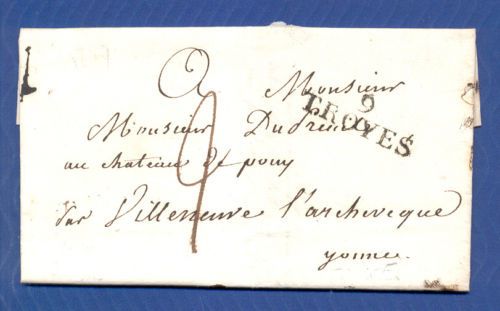 A Monsieur
9
TROYES
Monsieur
au chateau de pouy
par Villeneuve l'archeveque
yonne.